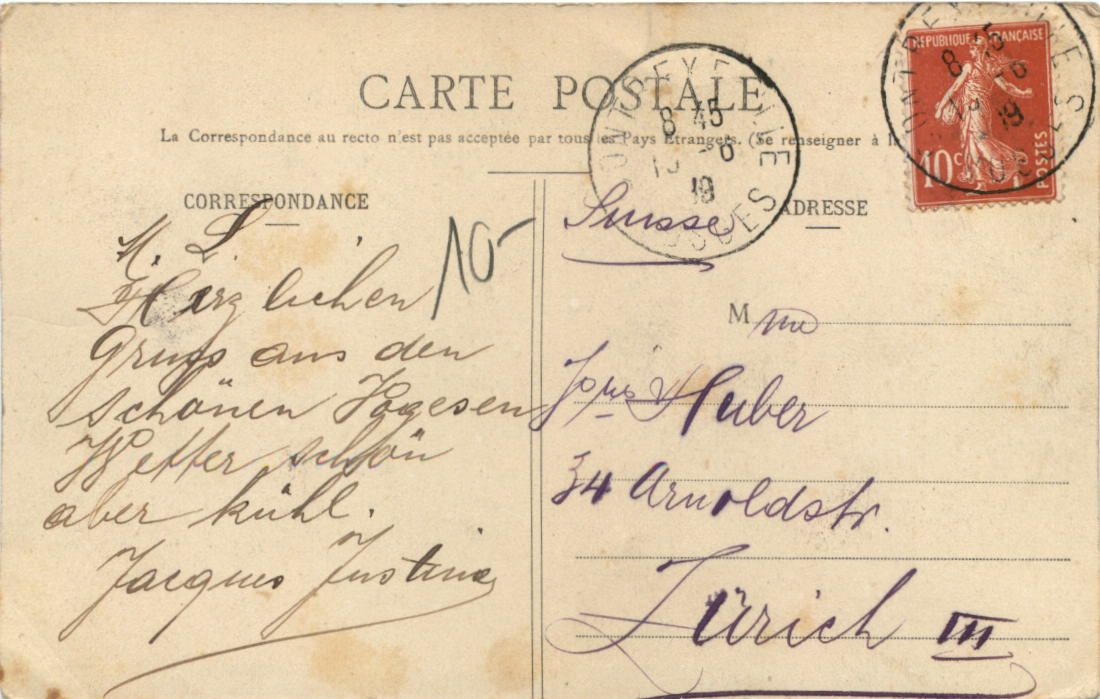 CARTE POSTALE
La Correspondance au recto n'est pas acceptée par tous les Pays Etrangers. (Se renseigner à la
CORRESPONDANCE
M. L.
Herzlichen
Gruss aus den
schönen Vogesen
Wetter schön
aber kühl.
Jacques Justine
10-
8 45
6
19
VOSGES
Suisse
ADRESSE
Mme
Huber
34 Arnoldstr.
Zürich III
REPUBLIQUE FRANÇAISE
10c
POSTES
8 45
6
19
VOSGES